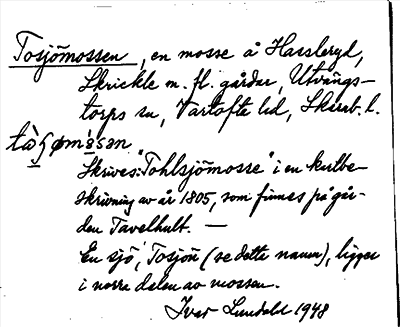 Tosjömossen, en mosse å Hassleryd,
Skrickle m. fl. gårdar, Utvängs-
torps sn, Vartofte hd, Skarab. l.
tò̀ʂøm̀ásan
Skrives: "Tohlsjömosse" i en kartbe-
skrivning av år 1805, som finnes på går-
den Tavelhult. —
En sjö, Tosjön (se detta namn), ligger
i norra delen av mossen.
Ivar Lundahl 1948